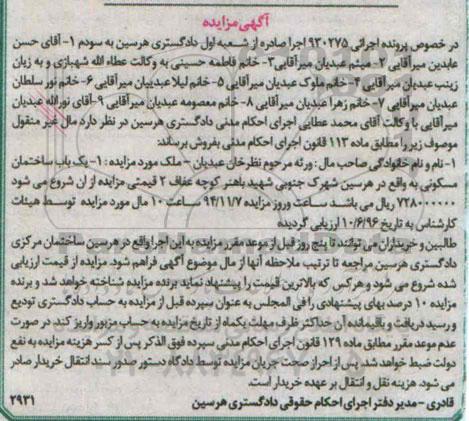 آگهی مزایده
در خصوص پرونده اجرائی ۹۳۰۲۷۵ اجرا صادره از شعبه اول دادگستری هرسین به سودم ۱- آقای حسن
عابدین میرآقایی ۲- میثم عبدیان میرآقایی ۳- خانم فاطمه حسینی به وکالت عطاء الله شهبازی و به زیان
زینب عبدیان میرآقایی ۴- خانم ملوک عبدیان میرآقایی ۵- خانم لیلا عبدییان میرآقایی ۶- خانم نور سلطان
عبدیان میرآقایی ۷- خانم زهرا عبدیان میرآقایی ۸- خانم معصومه عبدیان میرآقایی ۹- آقای نورالله عبدیان
میرآقایی با وکالت آقای محمد عطایی اجرای احکام مدنی دادگستری هرسین در نظر دارد مال غیر منقول
موصوف زیر را مطابق ماده ۱۱۳ قانون اجرای احکام مدنی بفروش برساند:
۱- نام و نام خانوادگی صاحب مال: ورثه مرحوم نظرخان عبدیان - ملک مورد مزایده: ۱- یک باب ساختمان
مسکونی به واقع در هرسین شهرک جنوبی شهید باهنر کوچه عفاف ۲ قیمتی مزایده از ان شروع می شود
۷۲۸۰۰۰۰۰۰ ریال می باشد ساعت وروز مزایده ۹۴/۱۱/۷ ساعت ۱۰ مال مورد مزایده توسط هیئات
کارشناس به تاریخ ۱۰/۶/۹۶ ارزیابی گردیده
طالبین و خریداران می توانند تا پنج روز قبل از موعد مقرر مزایده به این اجرا واقع در هرسین ساختمان مرکزی
دادگستری هرسین مراجعه تا ترتیب ملاحظه آنها از مال موضوع آگهی فراهم شود. مزایده از قیمت ارزیابی
شده شروع می شود و هرکس که بالاترین قیمت را پیشنهاد نماید برنده مزایده شناخته خواهد شد و برنده
مزایده ۱۰ درصد بهای پیشنهادی را فی المجلس به عنوان سپرده قبل از مزایده به حساب دادگستری تودیع
و رسید دریافت و باقیمانده آن حداکثر ظرف مهلت یکماه از تاریخ مزایده به حساب مزبور واریز کند. در صورت
عدم موعد مقرر مطابق ماده ۱۲۹ قانون اجرای احکام مدنی سپرده فوق الذکر پس از کسر هزینه مزایده به نفع
دولت ضبط خواهد شد. پس از احراز صحت جریان مزایده توسط دادگاه دستور صدور سند انتقال خریدار صادر
می شود. هزینه نقل و انتقال بر عهده خریدار است.
قادری - مدیر دفتر اجرای احکام حقوقی دادگستری هرسین
۲۹۳۱